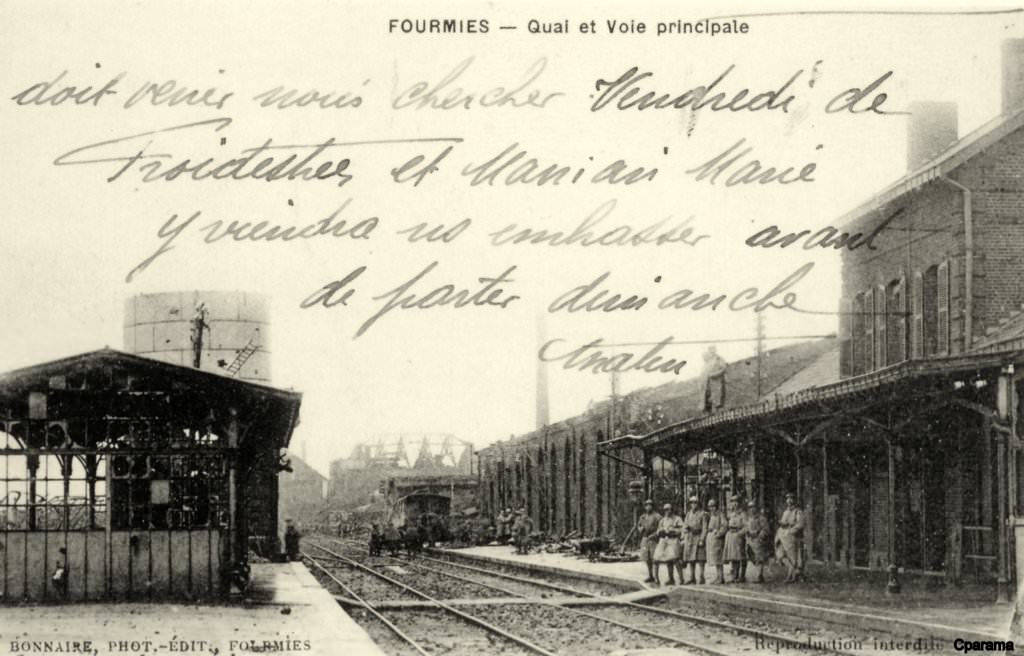 FOURMIES — Quai et Voie principale
doit venir nous chercher Vendredi de
et Marie
y viendra ns embrasser avant
de partir dimanche
matin
BONNAIRE, PHOT.-ÉDIT., FOURMIES
Reproduction interdite
Cparama